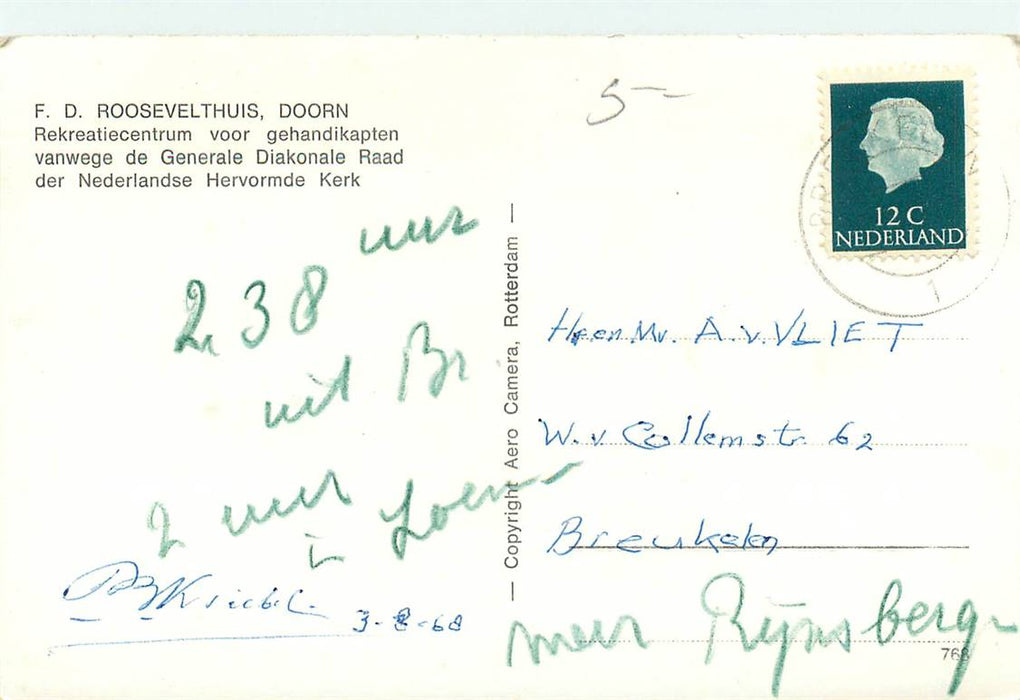 F. D. ROOSEVELTHUIS, DOORN
Rekreatiecentrum voor gehandikapten
vanwege de Generale Diakonale Raad
der Nederlandse Hervormde Kerk
5-
12 C
NEDERLAND
1
uur
2 38
uit Br.
2 uur
in Loenen
3-8-68
— Copyright Aero Camera, Rotterdam —
A. v. VLIET
W. v Collemstr. 62
Breukelen
Rijnsberge
768